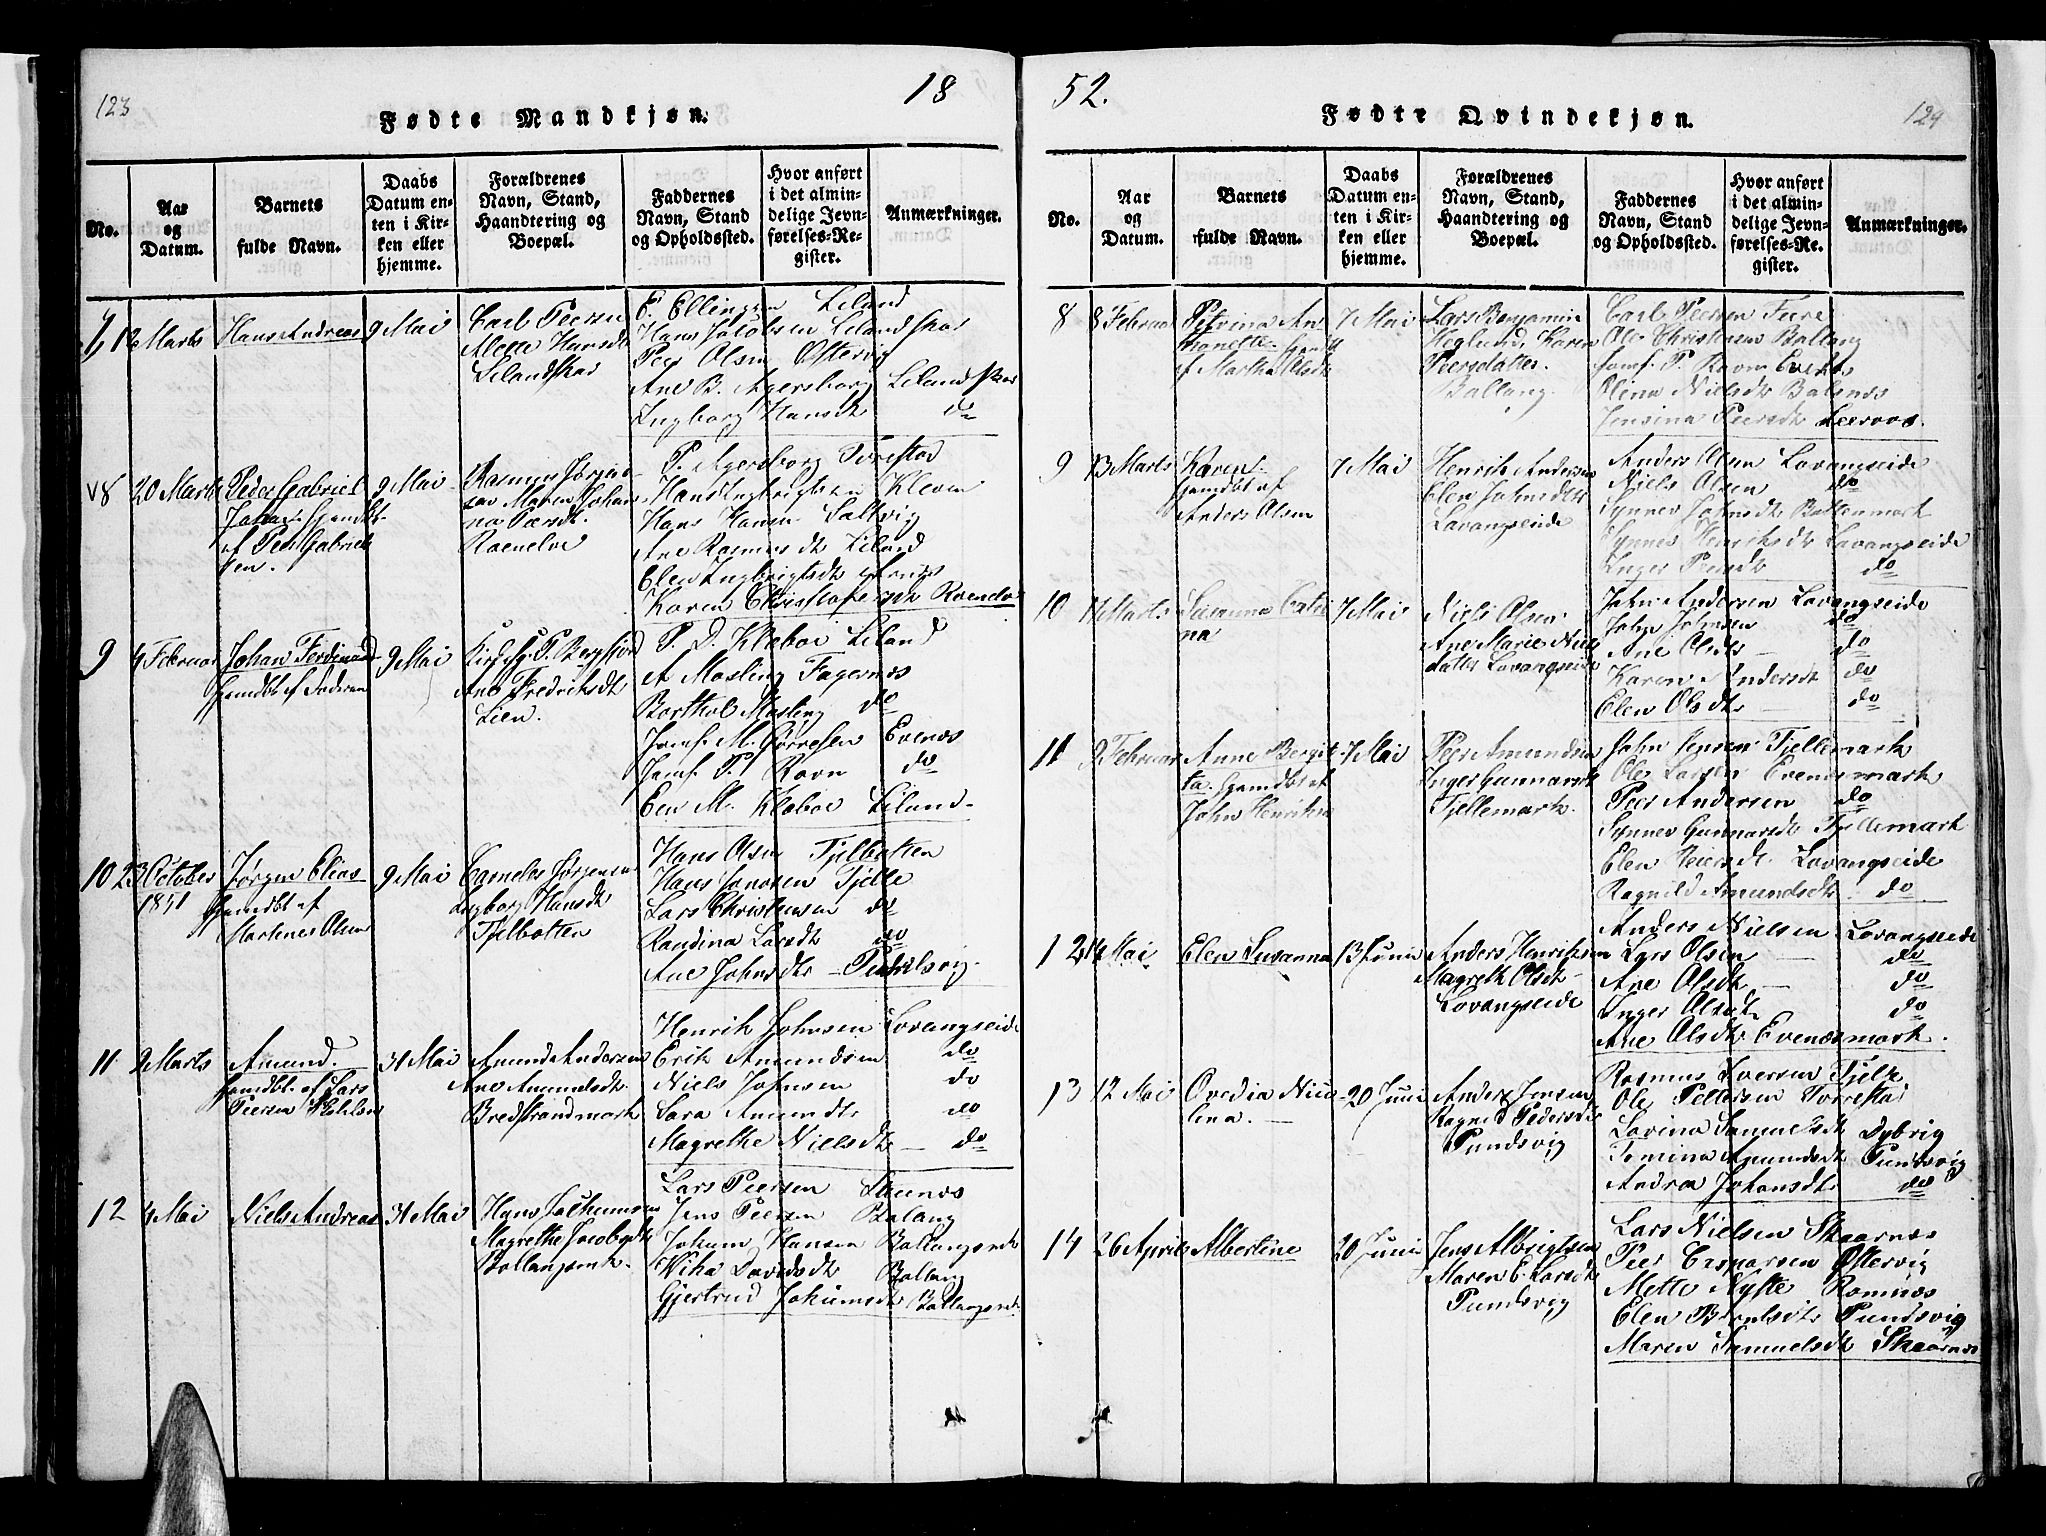 123
18
Fødte Mandkjøn.
No.
Aar og Datum.
Barnets fulde Navn.
Daabs Datum enten i Kirken eller hjemme.
Forældrenes Navn, Stand, Haandtering og Boepæl.
Faddernes Navn, Stand og Opholdssted.
Hvor anført i det almindelige Jevnførelses-Register.
Anmærkninger.
7 12 Marts
Hans Andreas
9 Mai
Carl Peersen
Alette Hansdt
Lilandskar
E. Ellingsen Liland
Hans Jacobsen Lilandskar
Peer Olsen Østervig
Ane B. Agersborg Lilandskar
Ingborg Hansdt do
8 20 Marts
Peder Gabriel
Johan
af Peder Gabriel
sen.
9 Mai
Rasmus Jørgen
sen Maren Johan
na Peersdt
Raenelve
P. Agersborg Torrestad
Hans Ingbrigtsen Kleven
Hans Hansen Saltvig
Ane Rasmusdt Liland
Elen Ingbrigtsdt
Karen Christophersdt
9 4 Februar
Johan Ferdinand
9 Mai
Ane Fredriksdt
Lien.
P. D. Klæboe Liland
A Masling Fagernæs
Barthol Masling do
Jomf. M. Gørresen Evenæs
Jomf. P. Ravn do
Een M. Klæboe Liland
10 23 October
1851
Jørgen Elias
hjemdbt af
Martenes Olsen
9 Mai
Cornelius Jørgensen
Ingborg Hansdt
Tjelbotten
Hans Olsen Tjelbotten
Hans Jonosen Tjelle
Lars Christensen do
Randina Larsdt do
Ane Johnsdt
11 9 Marts
Amund.
hjemdbt. af Lars
Peersen
31 Mai
Amund Andersen
Ane Amundsdt.
Bredstrandmark
Henrik Johnsen Lovangseide
Erik Amundsen do
Niels Johnsen do
Sara Amundsdt do
Magrethe Nielsdt do
12 4 Mai
Niels Andreas
31 Mai
Hans Jochumsen
Magrethe Jacobsdt
Ballangsmk.
Lars Peersen
Jens Peersen Balang
Johum Hansen Ballangsmk
Wiha Davidsdt Ballang
Gjertrud Jokumsdt Ballangsmk
52.
124
Fødte Qvindekjøn.
No.
Aar og Datum.
Barnets fulde Navn.
Daabs Datum enten i Kirken eller hjemme.
Forældrenes Navn, Stand, Haandtering og Boepæl.
Faddernes Navn, Stand og Opholdssted.
Hvor anført i det almindelige Jevnførelses-Register.
Anmærkninger.
8 8 Februar
Petrina An
tonette
af Martha Olsdt
7 Mai
Lars Benjamin
Heglund, Karen
Peersdatter
Ballang.
Carl Peersen Fiere
Ole Christensen Ballang
Jomf. P. Ravn Evenæs
Olina Nielsdt Balsnæs
Jensina Peersdt
9 13 Marts
Karen.
hjemdbt af
Anders Olsen
7 Mai
Henrik Andersen
Elen Johnsdtr
Lavangseide
Anders Olsen Lavangseide
Niels Olsen do
Synnev Johnsdt Bottenmark
Synnev Henriksdt Lavangseide
Inger Peersdt do
10 17 Marts
Susanna Catri
na
7 Mai
Niels Olsen
Ane Marie Niels
datter Lovangseide
John Andersen Lovangseide
John Johnsen do
Ane Olsdt do
Karen Andersdt do
Elen Olsdt do
11 9 Februar
Anne Bergit
ta. hjemdbt af
John Henriksen
7 Mai
Peer Amundsen
Inger Gunnarsdt
Tjellemark.
John Jensen Tjellemark
Ole Larsen Evenæsmark
Peer Andersen do
Synnev Gunnarsdt Tjellemark
Elen Peersdt. Lovangseide
Ragnild Amundsdt. do
12 14 Mai
Elen Susanna
13 Juni
Anders Henriksen
Magreth Olsdt
Lovangseide
Anders Nielsen Lovangseide
Lars Olsen do
Ane Olsdt do
Inger Olsdt do
Ane Olsdt Evenæsmark.
13 12 Mai
Ovedia Nico
lina.
20 Juni
Anders Jensen
Ragnild Pedersdt
Pundsvig
Rasmus Iversen Tjelle
Ole Pettersen Torrestad
Lovina Samuelsdt Dybvig
Tomina Amundsdt Pundsvig
Andrea Johansdt do
14 26 April
Albertine
20 Juni
Jens Albrigtsen
Maren E. Larsdt
Pundsvig
Lars Nielsen Skaarnæs
Peer Casparsen Østervig
Mette Nyste Ramnæs
Elen Berntsdt Pundsvig
Maren Samuelsdt Skaarnæs